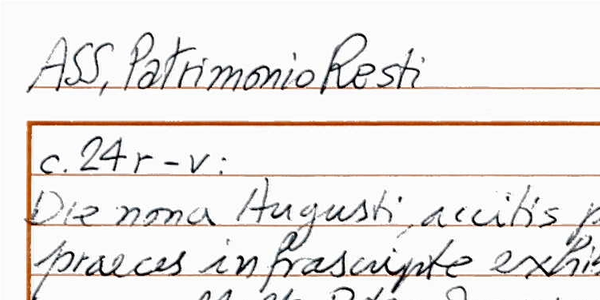 ASS, Patrimonio Resti
c. 24 r - v:
Die nona Augusti, accitis
praeces infrascripte exhi